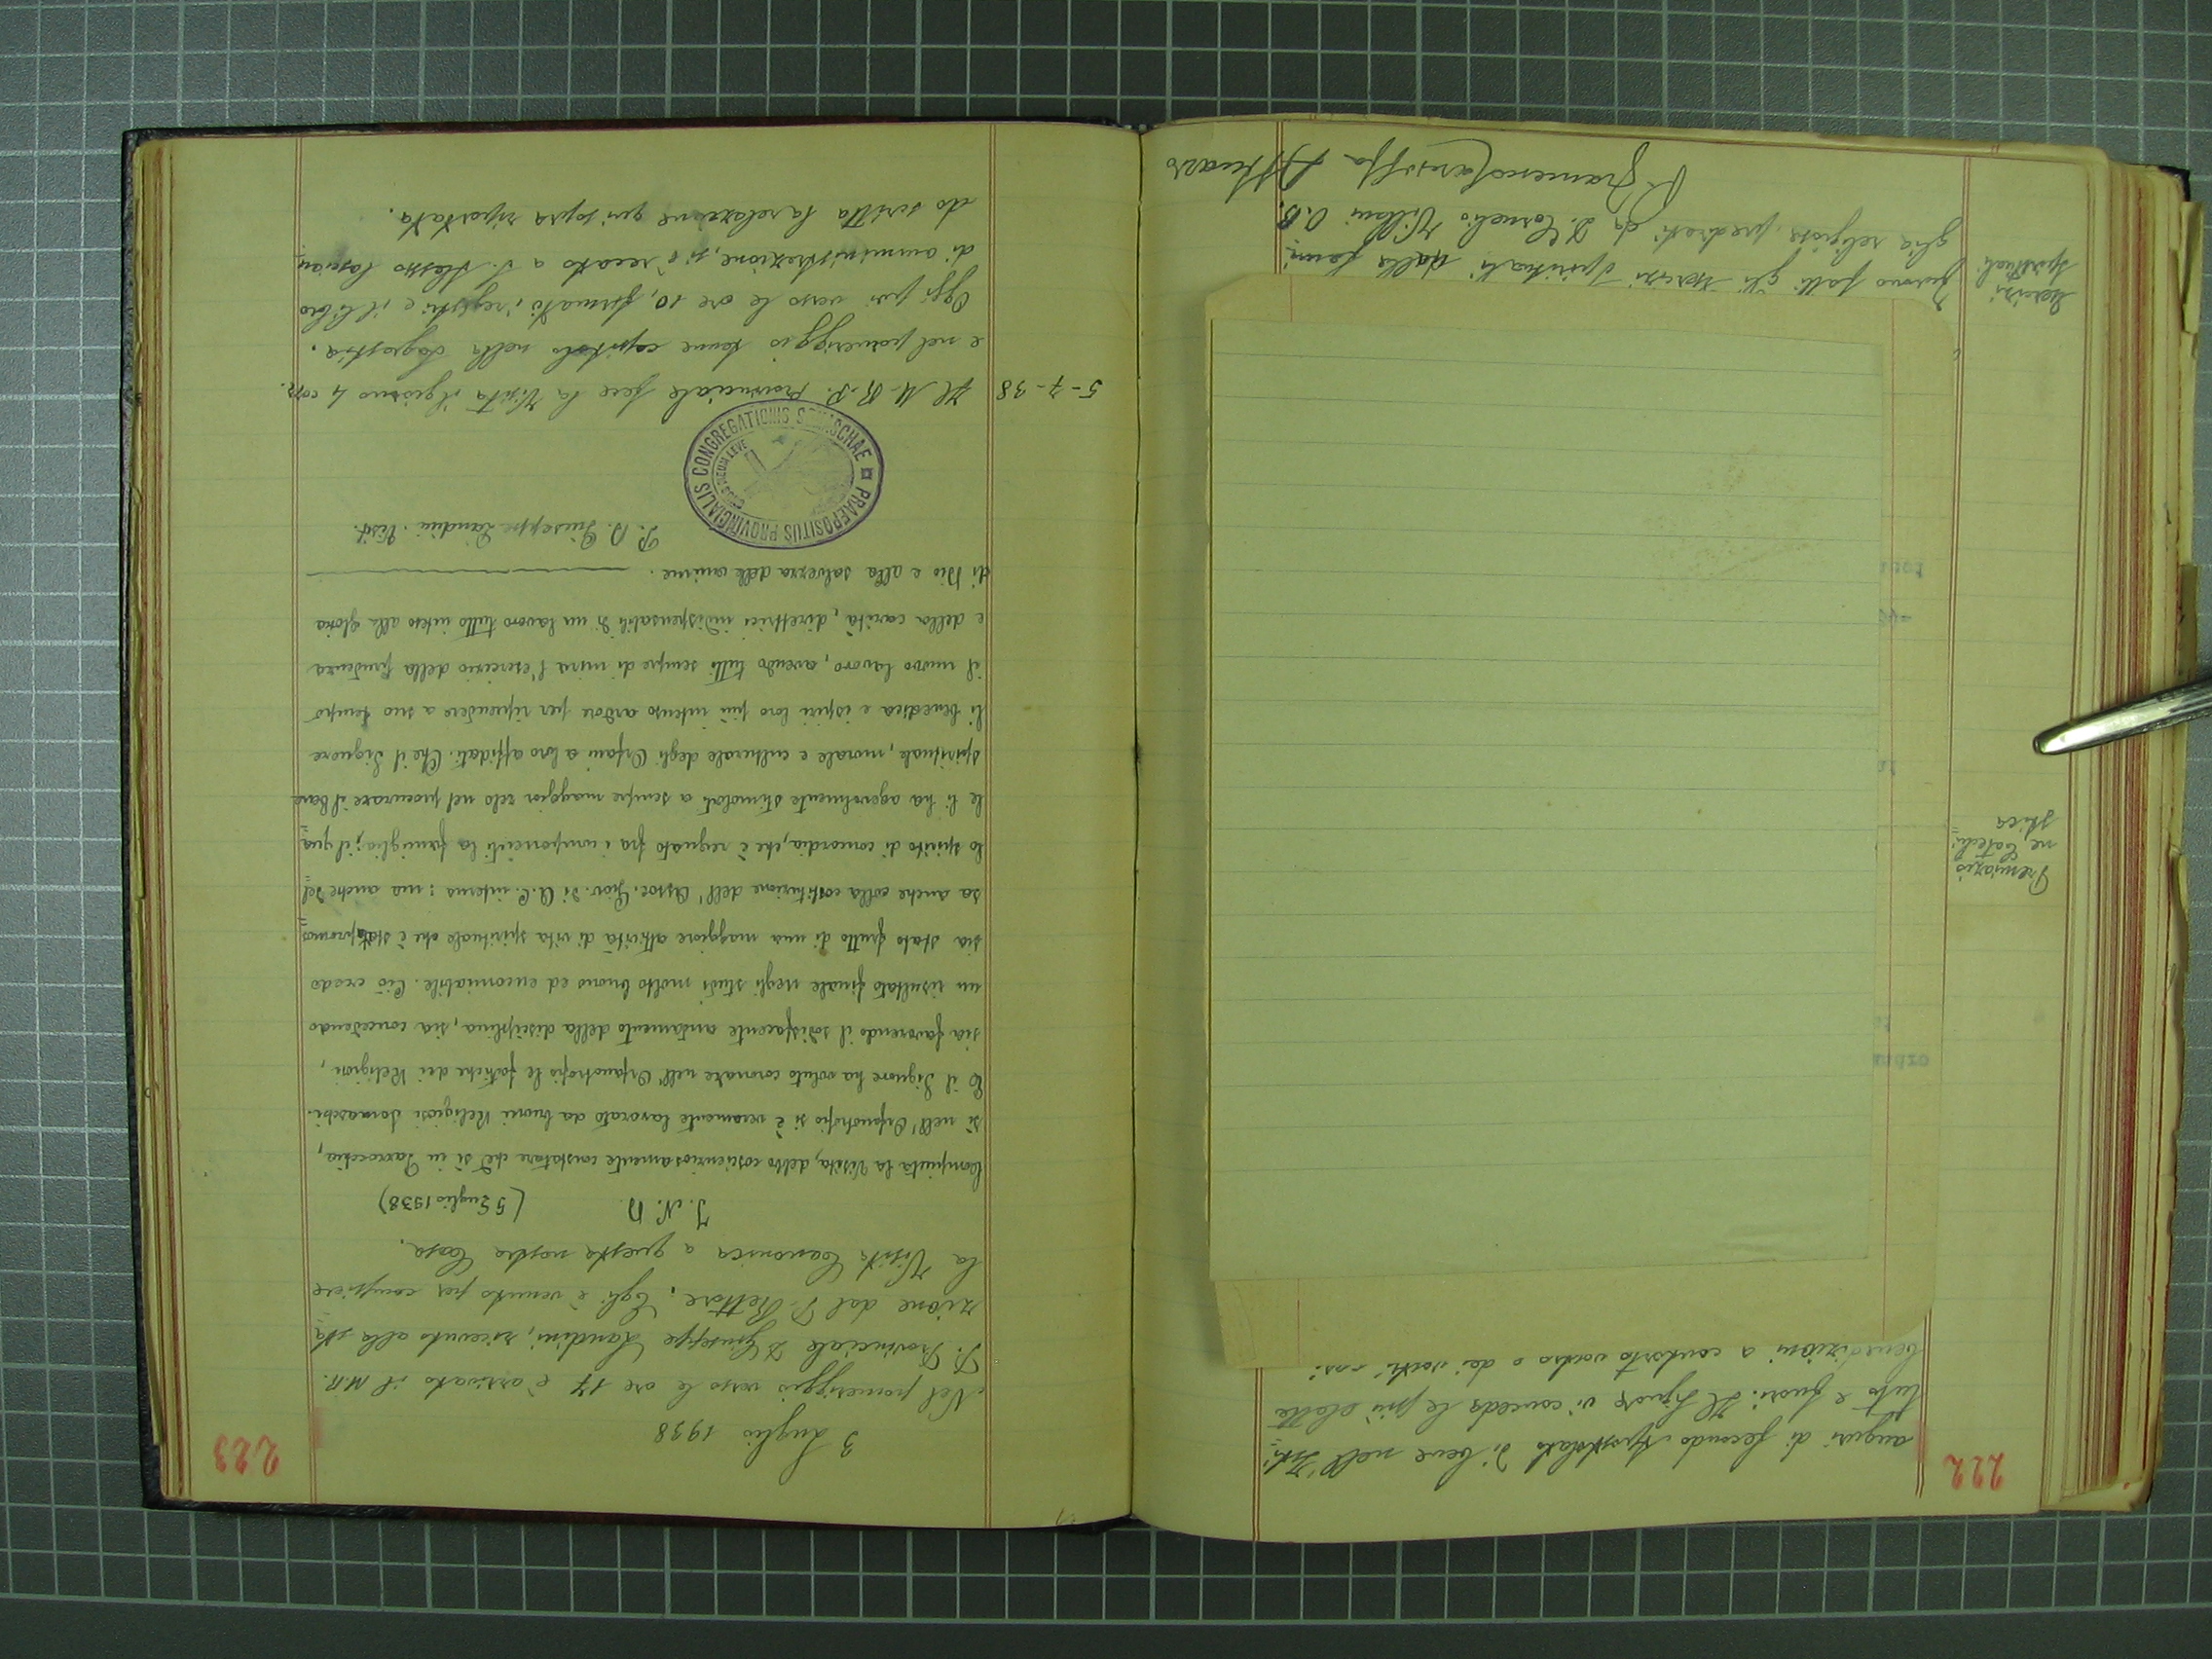 222
auguri di fecondo Apostolato di bene nell'Isti=
tuto e fuori. Il Signore vi conceda le più elette
benedizioni a conforto vostro e dei vostri cari
Premiazio
ne Catechi=
stica
Esercizi
spirituali
Furono fatti gli esercizi spirituali dalla fami=
glia religiosa, predicati da D. Cornelio Villani O.B.
P. Francesco Attuario
223
3 Luglio 1938
Nel pomeriggio verso le ore 17 è arrivato il M.R.
P. Provinciale D. Giuseppe Landini, ricevuto alla sta=
zione dal P. Rettore. Egli è venuto per compiere
la Visita Canonica a questa nostra Casa.
J. N. D. (5 Luglio 1938)
Compiuta la Visita, debbo coscienziosamente constatare che sì in Parrocchia,
sì nell'Orfanotrofio si è veramente lavorato da buoni Religiosi Somaschi.
E il Signore ha voluto coronare nell'Orfanotrofio le fatiche dei Religiosi,
sia favorendo il sodisfacente andamento della disciplina, sia concedendo
un risultato finale negli studi molto buono ed encomiabile. Ciò credo
sia stato frutto di una maggiore attività di vita spirituale che è stata promos=
sa anche colla costituzione dell'Assoc. Giov. di A.C. interna: ma anche del=
lo spirito di concordia, che è regnato fra i componenti la famiglia; il qua=
le li ha agevolmente stimolati a sempre maggior zelo nel procurare il bene
spirituale, morale e culturale degli Orfani a loro affidati. Che il Signore
li benedica e ispiri loro più intenso ardore per riprendere a suo tempo
il nuovo lavoro, avendo tutti sempre di mira l'esercizio della prudenza
e della carità, direttrici indispensabili di un lavoro tutto inteso alla gloria
di Dio e alla salvezza delle anime.
P. D. Giuseppe Landini. Visit.
PRAEPOSITUS PROVINCIALIS CONGREGATIONIS SOMASCHAE
ONUS MEUM LEVE
5-7-38 Il M. R. P. Provinciale fece la Visita il giorno 4 corr.
e nel pomeriggio tenne capitolo nella sagrestia.
Oggi poi verso le ore 10, firmati i registri e il libro
di amministrazione, si è recato a S. Alessio lascian=
do scritta la relazione qui sopra riportata.